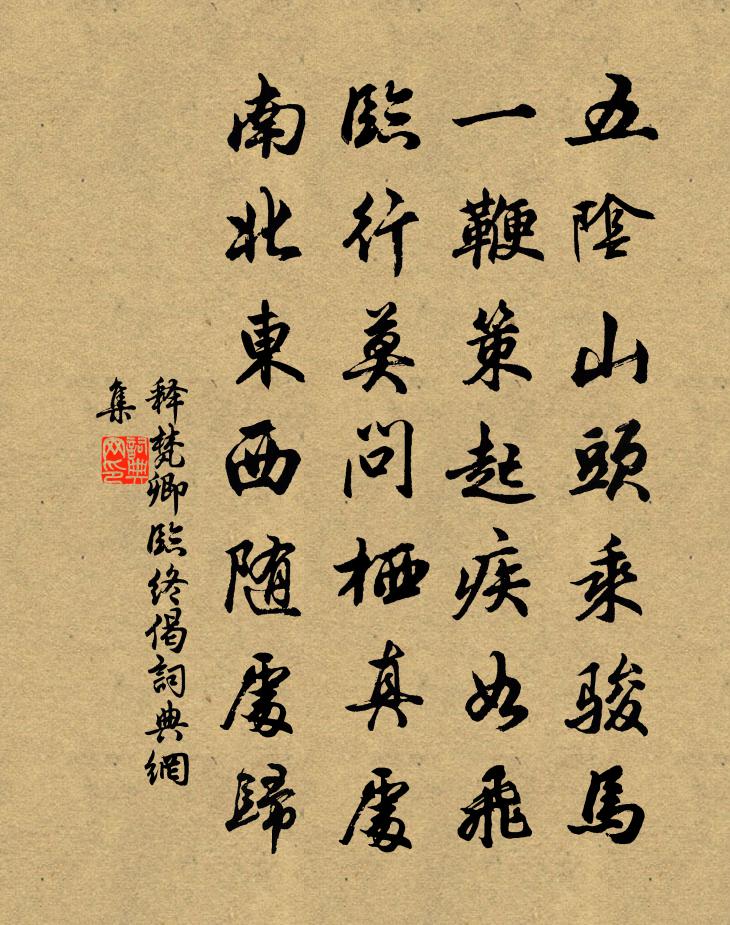 五陰山頭乘駿馬
一鞭策起疾如飛
臨行莫問栖真處
南北東西随處歸
释梵卿臨终偈詞典網
集
詞典网印